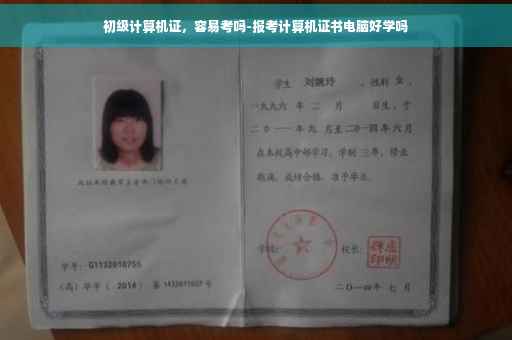 初级计算机证，容易考吗-报考计算机证书电脑好学吗
学生 刘婉玲 ，性别 女 ，
一九九六 年 二 月 日生，于
二〇一一年 九 月至二〇一四年 六 月
在本校高中部学习，学制 三年，修业
期满，成绩合格，准予毕业。
学号：G1132010755
（高）毕字（ 2014 ）第 1432011027 号
学校：
校长：
二〇一四年 七 月